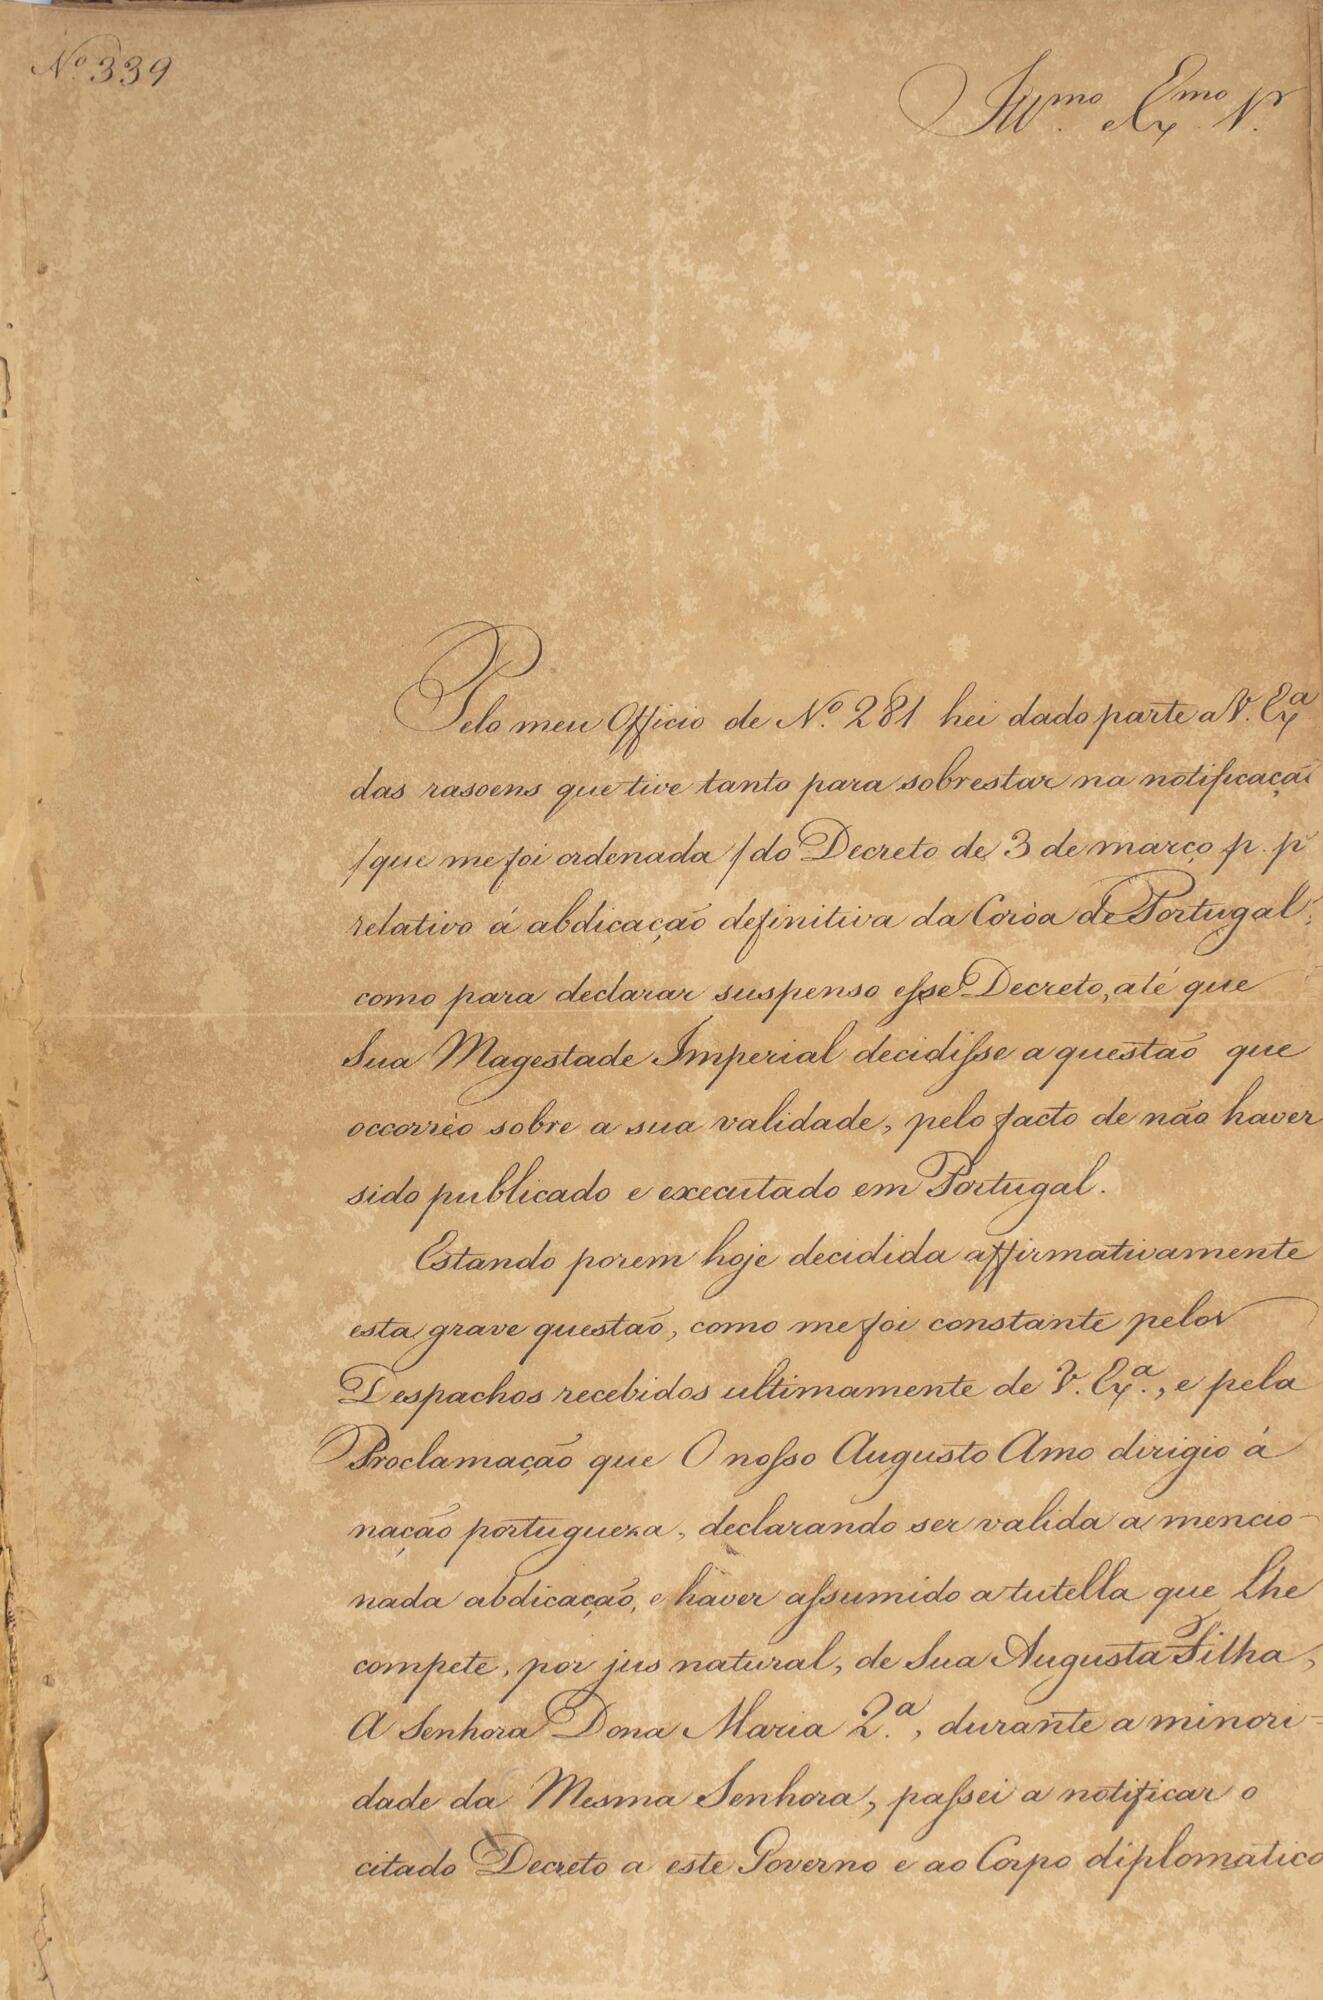 Nº 339
Illmo. e Exmo. Sr.
Pelo meu Officio de Nº. 281 hei dado parte a V. Exª
das rasoens que tive tanto para sobrestar na notificação
/que me foi ordenada/ do Decreto de 3 de março p. p.
relativo á abdicação definitiva da Coròa de Portugal;
como para declarar suspenso esse Decreto, até que
Sua Magestade Imperial decidisse a questão que
occorrèo sobre a sua validade, pelo facto de não haver
sido publicado e executado em Portugal.
Estando porem hoje decidida affirmativamente
esta grave questão, como me foi constante pelos
Despachos recebidos ultimamente de V. Exª., e pela
Proclamação que O nosso Augusto Amo dirigio á
nação portugueza, declarando ser valida a mencio-
nada abdicação, e haver assumido a tutella que Lhe
compete, por jus natural, de Sua Augusta Filha,
A Senhora Dona Maria 2.ª, durante a minori-
dade da Mesma Senhora, passei a notificar o
citado Decreto a este Governo e ao Corpo diplomatico